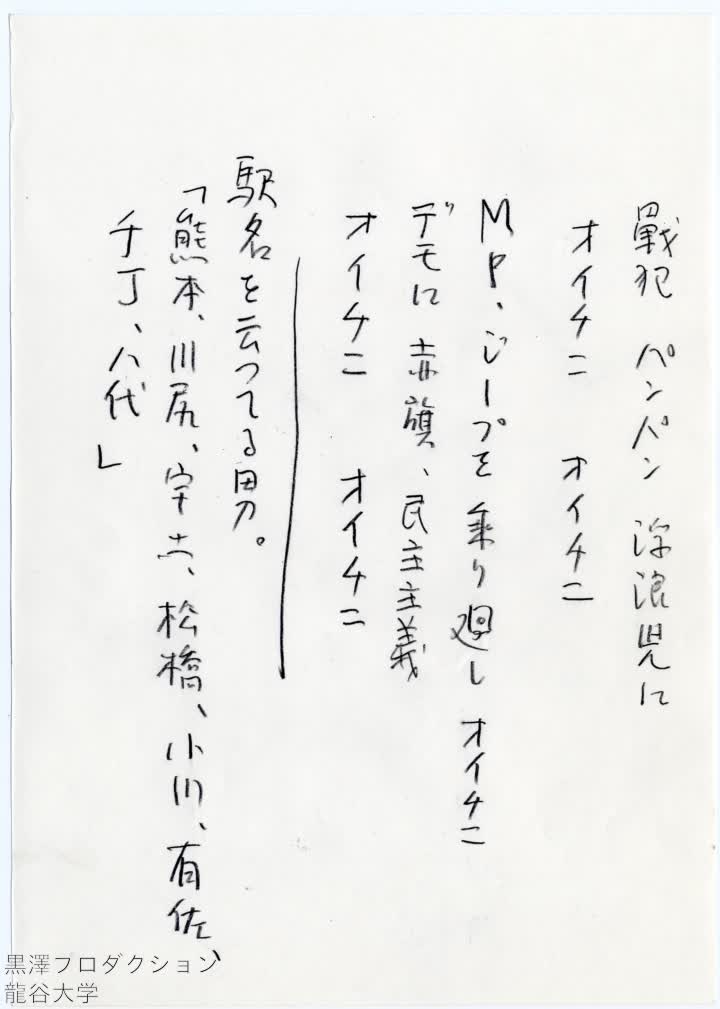 戰犯 パンパン 浮浪児に
オイチニ オイチニ
MP、ジープを乗り廻し オイチニ
デモに 赤旗、民主主義
オイチニ オイチニ
駅名を云つてる男。
「熊本、川尻、宇土、松橋、小川、有佐、
千丁、八代」
黒澤プロダクション
龍谷大学